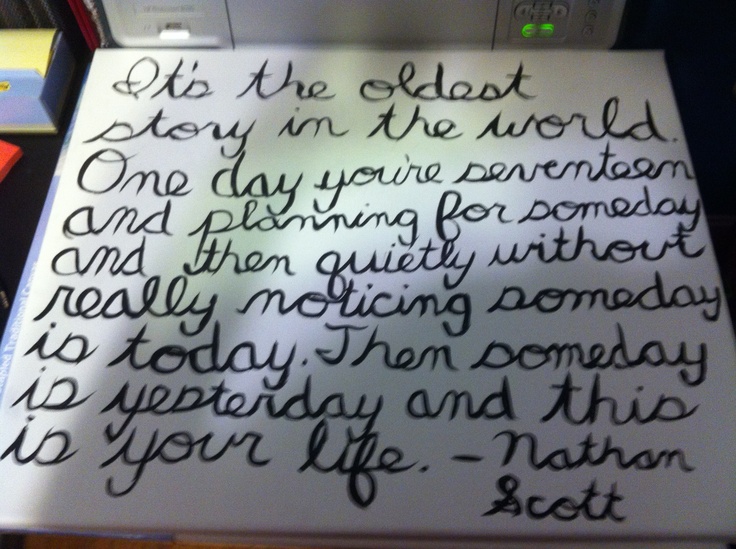 It's the oldest
story in the world.
One day you're seventeen
and planning for someday
and then quietly without
really noticing someday
is today. Then someday
is yesterday and this
is your life. - Nathan
Scott